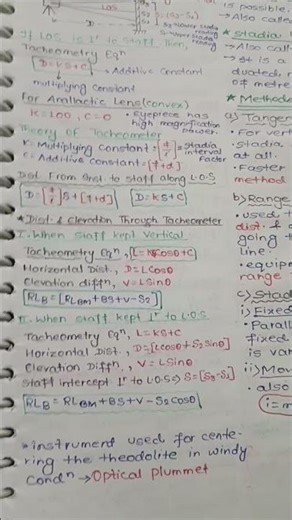 L.O.S
D = K(S₁-S₂)
If LOS is 1ʳ to staff Then,
Tacheometry Eqⁿ
D = KS+C → Additive Constant
multiplying Constant
For Anallactic Lens (convex)
K = 100, C = 0 • Eyepiece has high magnification power.
Theory of Tacheometer
K = Multiplying Constant = f/i = Stadia interval Factor
C = Additive Constant = [f+d]
Dist. From Inst to staff along L.O.S
D = [f/i] S + [f+d] D = KS+C
* Dist. & Elevation Through Tacheometer
I. When staff kept Vertical
Tacheometry Eqⁿ, L = KScosθ+C
Horizontal Dist., D = Lcosθ
Elevation diffⁿ, V = Lsinθ
RL_B = RL_BM + BS + V - S₂
II. When staff kept 1ʳ to L.O.S
Tacheometry Eqⁿ, L = KS+C
Horizontal Dist, D = [Lcosθ + S₂sinθ]
Elevation Diffⁿ, V = LSinθ
Staff intercept 1ʳ to L.O.S ⇒ S = [S₃-S₁]
RL_B = RL_BM + BS + V - S₂cosθ
* instrument used for cente-
ring the theodolite in windy
condⁿ → Optical plummet
is possible.
→ Also called
* Stadia
→ Also call
→ It is a
duated,
of metre
* Methods
a) Tangen
• For vert
• Stadia
at all.
• Faster
method
b) Range
• used t
dist. &
going t
line.
• equip
range
c) Stad
i) Fixed
• Paral
fixed
is va
ii) Mov
• also
i = m